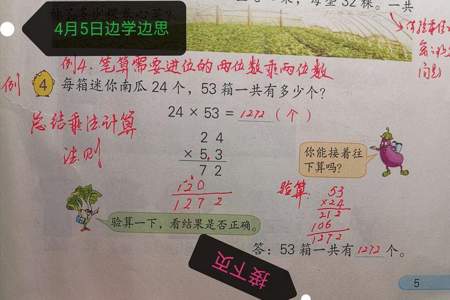 每垄32棵。一共
4月5日边学边思
例4、笔算需要进位的两位数乘两位数
例
4 每箱迷你南瓜24个，53箱一共有多少个？
24×53=1272（个）
总结乘法计算
法则
24
×53
72
120
1272
你能接着往
下算吗？
验算
53
×24
212
106
1272
验算一下，看结果是否正确。
答：53箱一共有1272个。
接下页
5